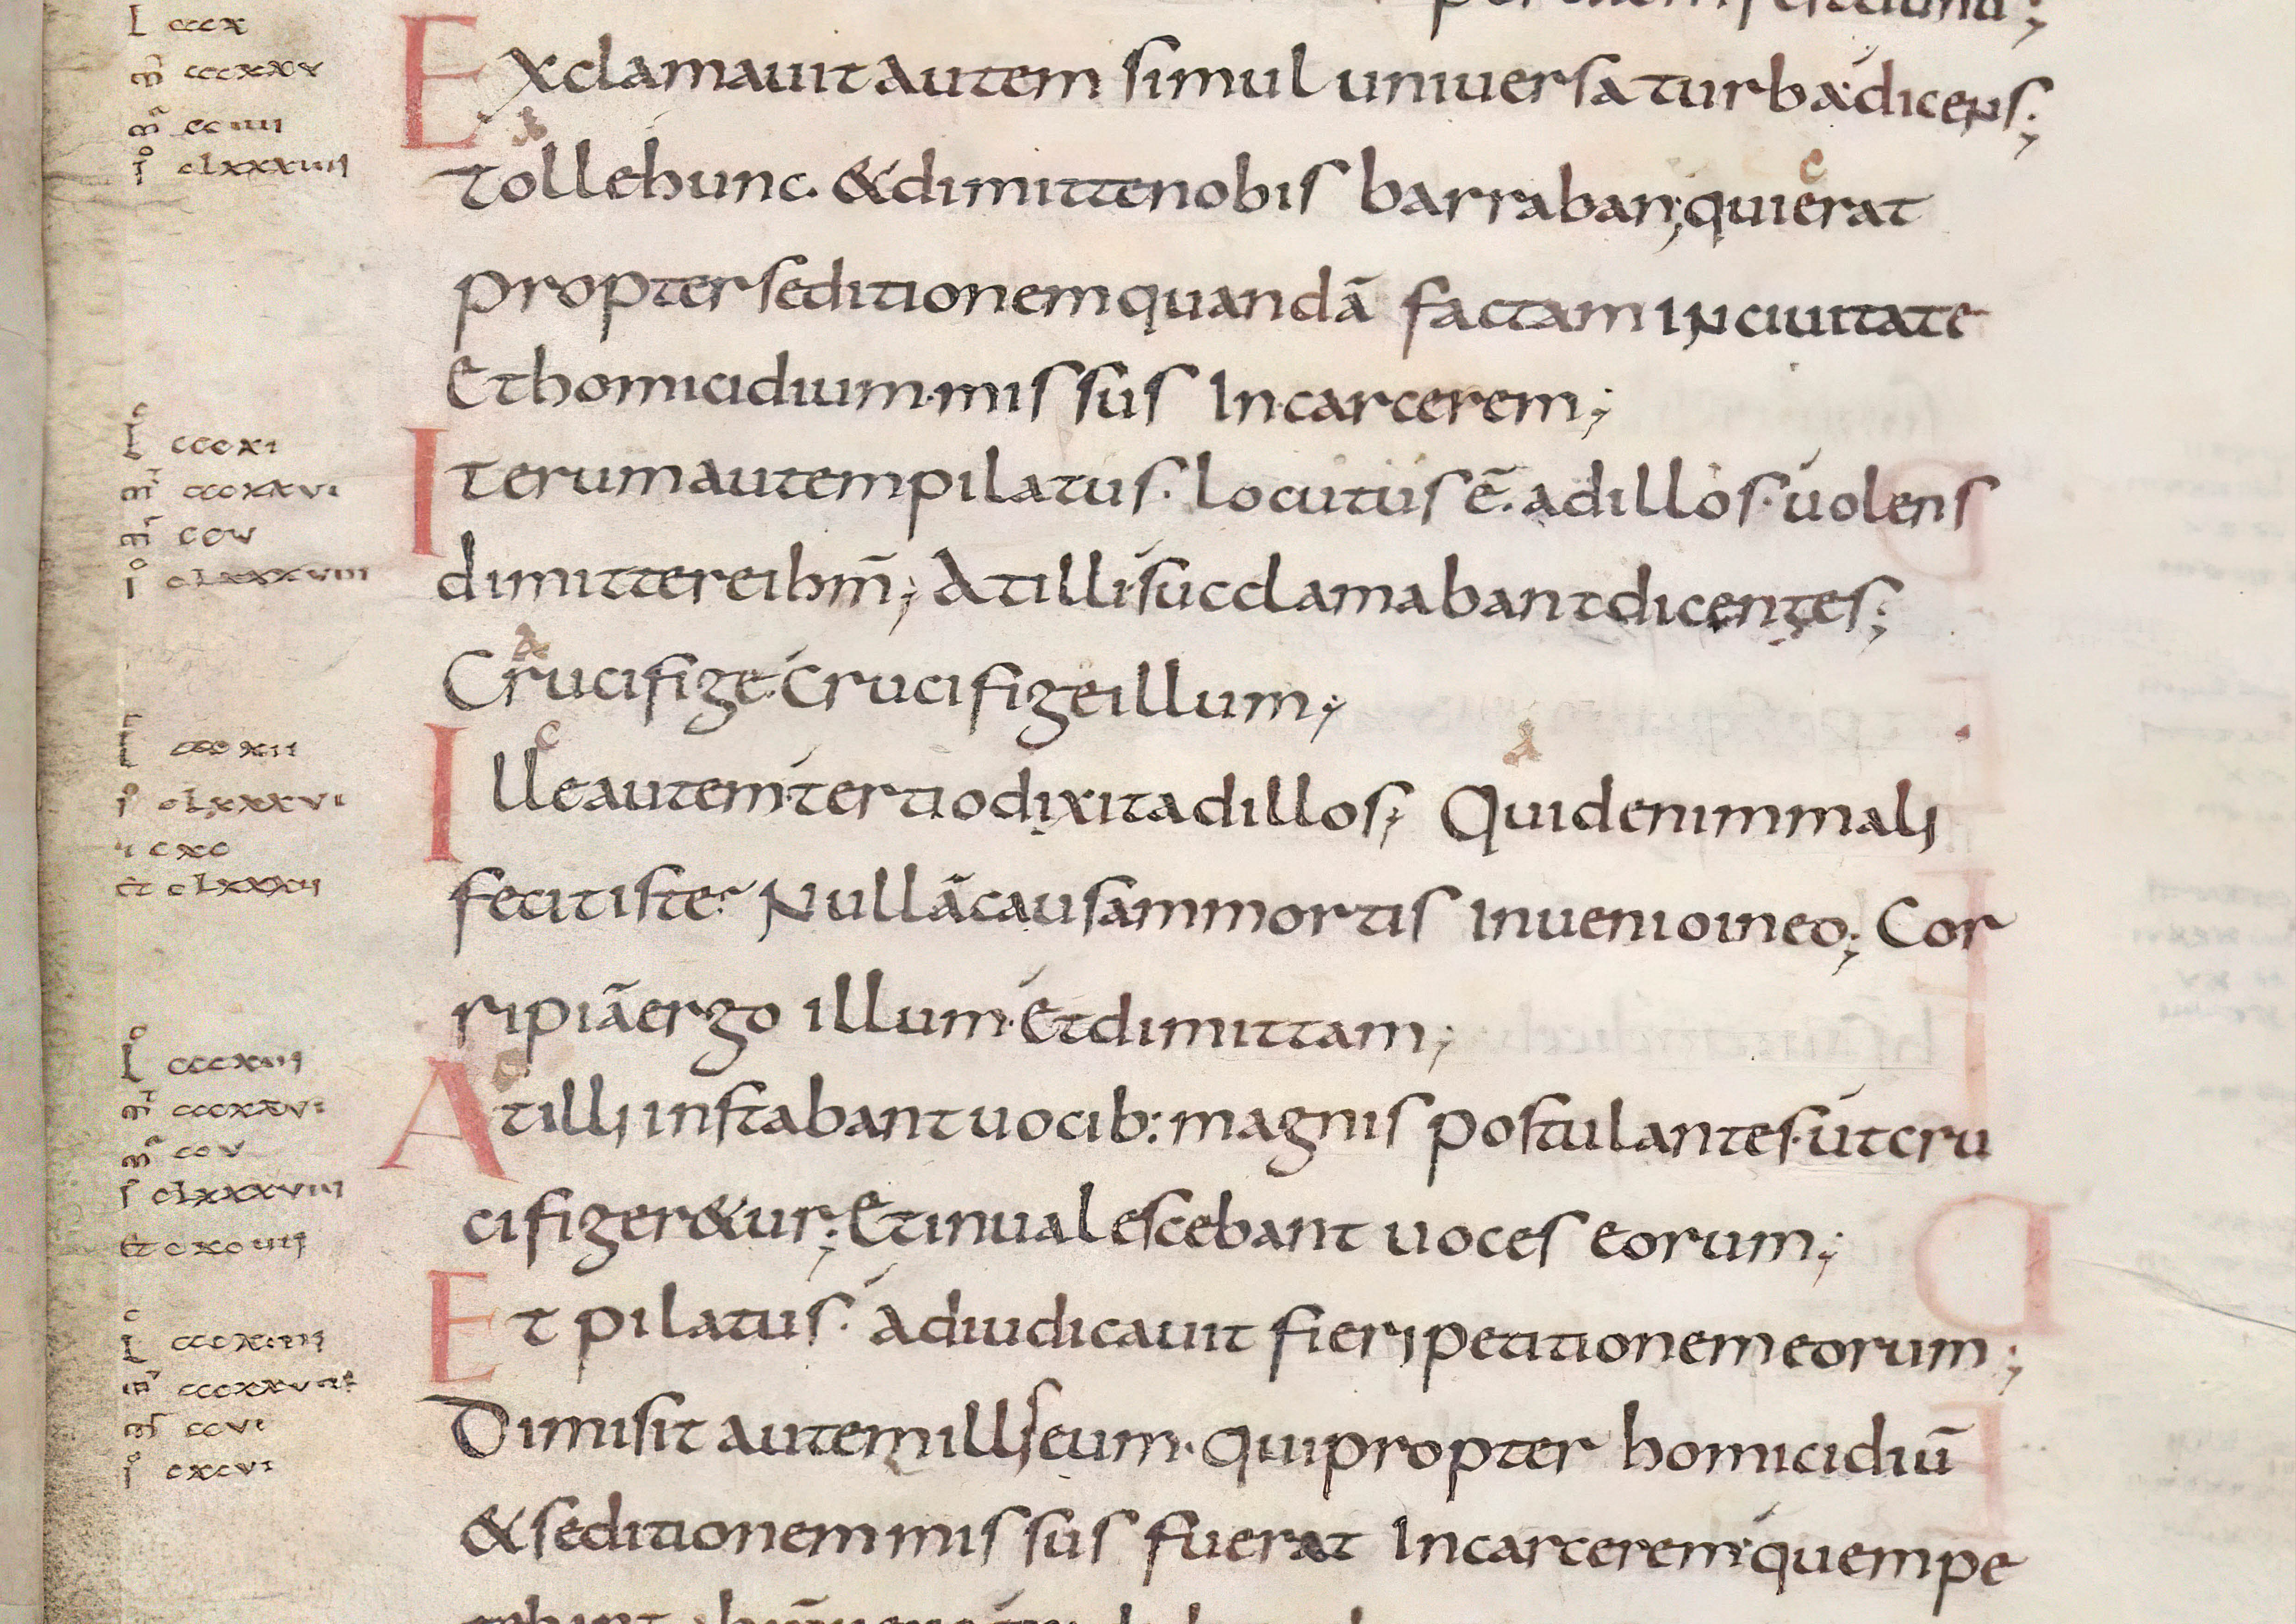 L cccx
mr cccxxv
mt cciiii
io clxxxiiii
Exclamauit autem simul uniuersa turba dicens;
tolle hunc. & dimitte nobis barraban; qui erat
propter seditionem quandā factam in ciuitate
Et homicidium. missus In carcerem;
L cccxi
mt cccxxvi
mr ccv
io clxxxviii
Iterum autem pilatus. locutus ē. ad illos. uolens
dimittere ihm̄; At illi succlamabant dicentes;
Crucifige. Crucifige illum;
L cccxii
io clxxxvi
cxc
et clxxxii
Ille autem tertio dixit ad illos; Quid enim mali
fecit iste? Nullā causam mortis inuenio in eo; Cor
ripiā ergo illum. Et dimittam;
L cccxiii
mt cccxxvi
mr ccv
io clxxxviii
et cxciiii
At illi instabant uocib: magnis postulantes. ut cru
cifiger&ur; Et inualescebant uoces eorum;
Et pilatus. adiudicauit fieri petitionem eorum;
L cccxiiii
mt cccxxviii
mr ccvi
io cxcvi
Dimisit autem illis eum. qui propter homicidiū
& seditionem missus fuerat In carcerem. quem pe